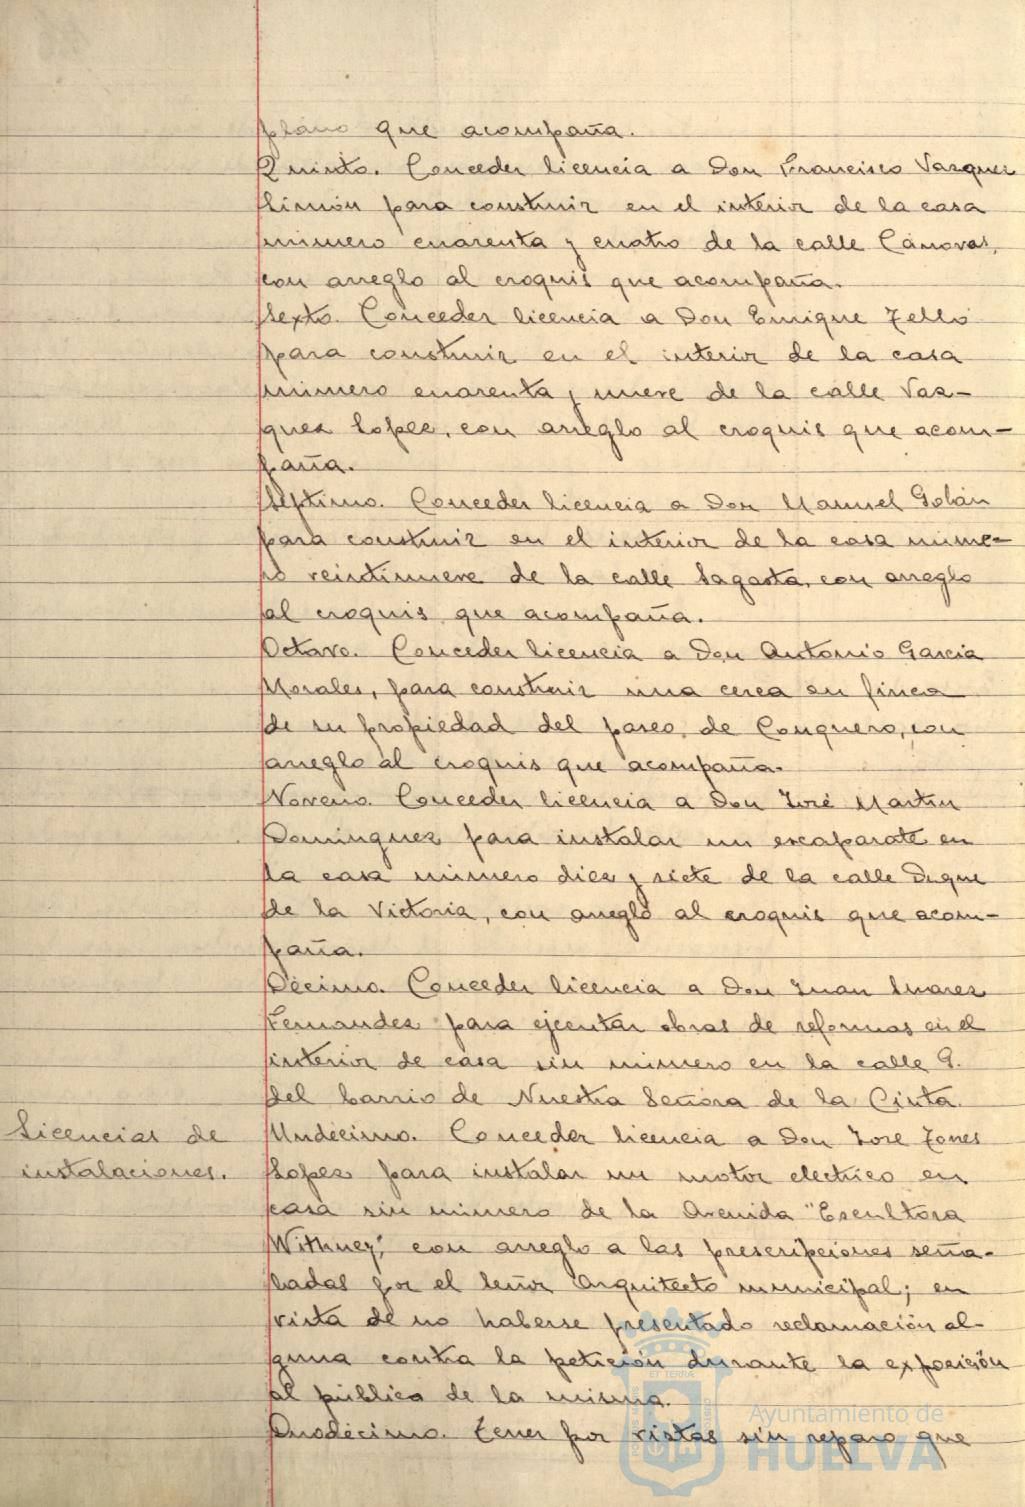 plano que acompaña.
Quinto. Conceder licencia a Don Francisco Vazquez
Simón para construir en el interior de la casa
número cuarenta y cuatro de la calle Cánovas,
con arreglo al croquis que acompaña.
Sexto. Conceder licencia a Don Enrique Tello
para construir en el interior de la casa
número cuarenta y nueve de la calle Vaz-
quez Lopez, con arreglo al croquis que acom-
paña.
Séptimo. Conceder licencia a Don Manuel Golán
para construir en el interior de la casa núme-
ro veintinueve de la calle Sagasta, con arreglo
al croquis que acompaña.
Octavo. Conceder licencia a Don Antonio Garcia
Morales, para construir una cerca en finca
de su propiedad del paseo de Conquero, con
arreglo al croquis que acompaña.
Noveno. Conceder licencia a Don José Martin
Dominguez para instalar un escaparate en
la casa número diez y siete de la calle Duque
de la Victoria, con arreglo al croquis que acom-
paña.
Décimo. Conceder licencia a Don Juan Suarez
Fernandez para ejecutar obras de reformas en el
interior de casa sin número en la calle G.
del barrio de Nuestra Señora de la Cinta.
Licencias de
instalaciones.
Undécimo. Conceder licencia a Don Jose Tones
Lopez para instalar un motor electrico en
casa sin número de la Avenida "Escultora
Withney", con arreglo a las prescripciones seña-
ladas por el Señor Arquitecto municipal; en
vista de no haberse presentado reclamación al-
guna contra la petición durante la exposición
al público de la misma.
Duodécimo. Tener por vistas sin reparo que
Ayuntamiento de
HUELVA